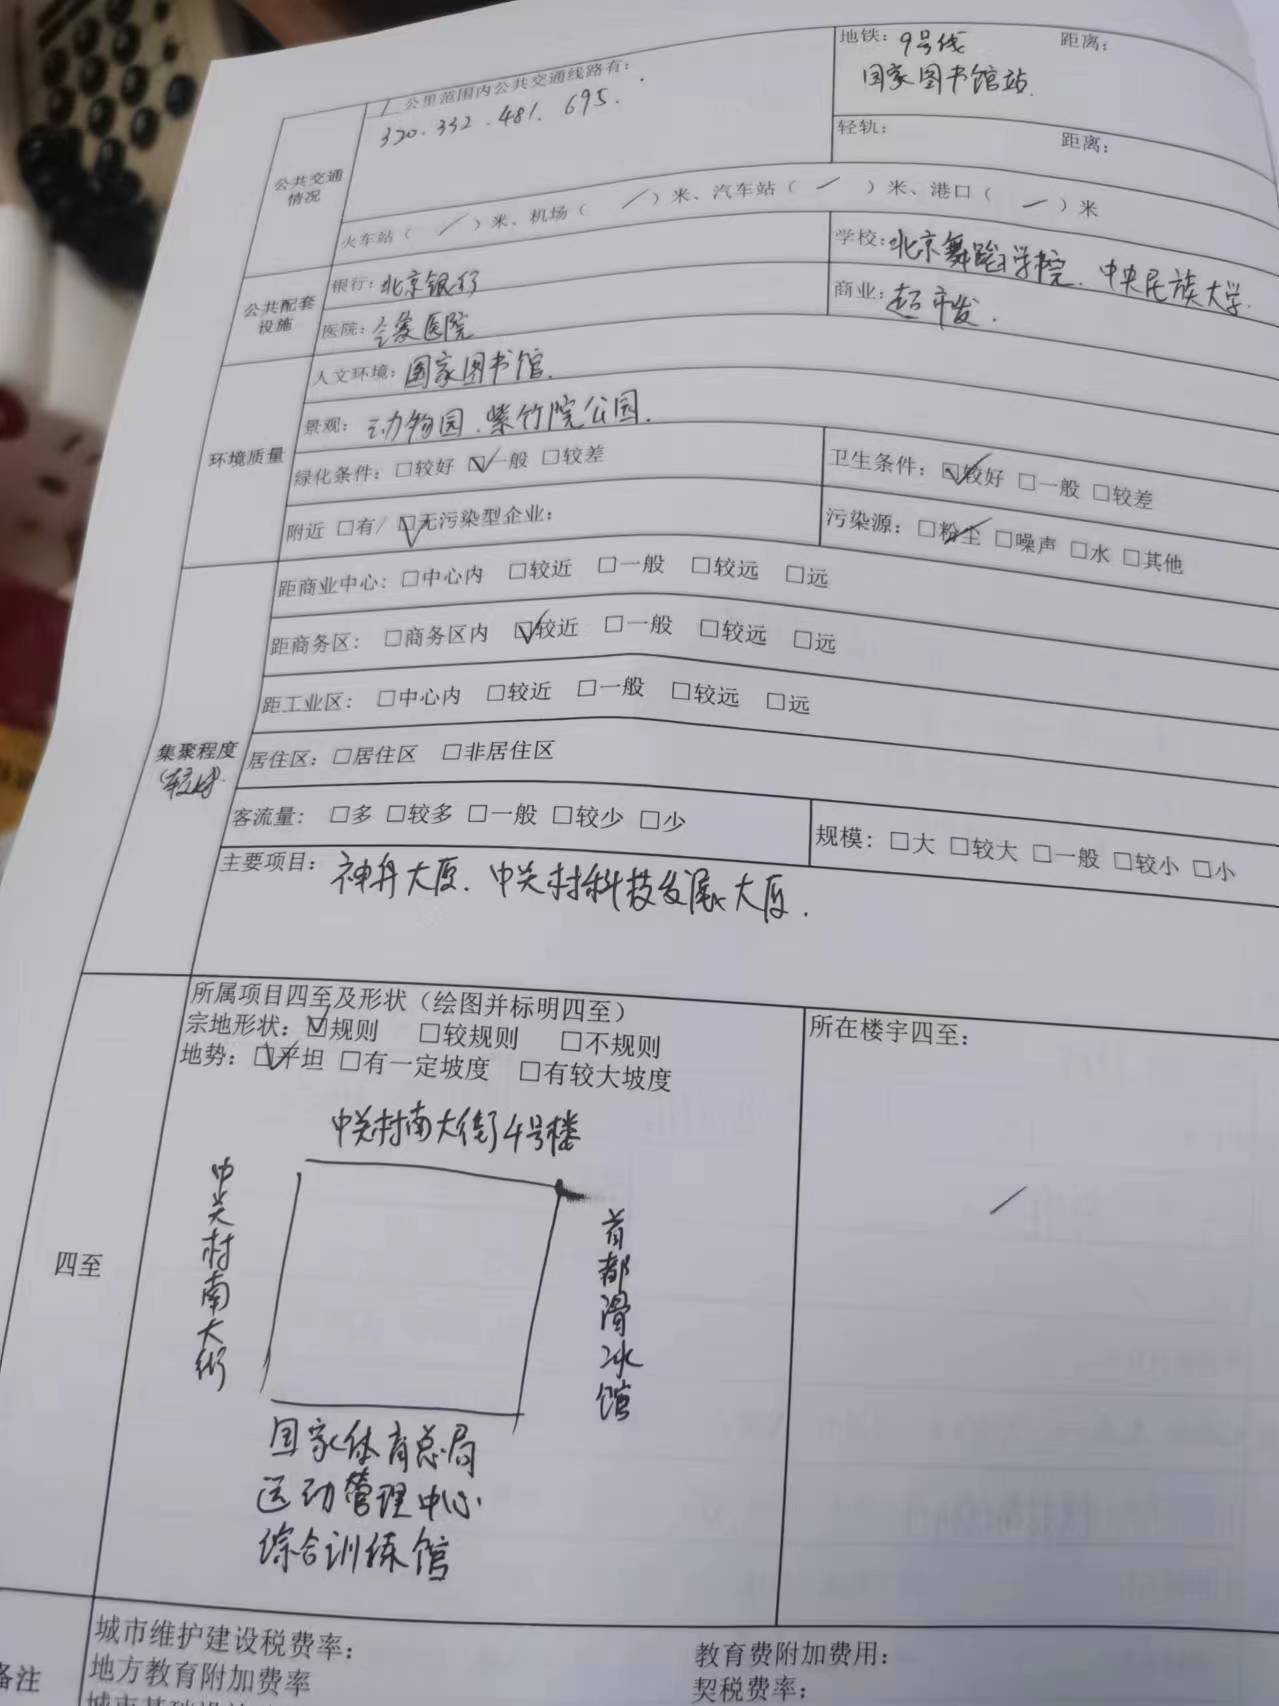 1 公里范围内公共交通线路有：
320. 332. 481. 695.
地铁：9号线 距离：
国家图书馆站.
轻轨： 距离：
公共交通
情况
火车站（ / ）米、机场（ / ）米、汽车站（ / ）米、港口（ / ）米
公共配套
设施
银行：北京银行
学校：北京舞蹈学院. 中央民族大学.
医院：仝爱医院
商业：超市发.
环境质量
人文环境：国家图书馆.
景观：动物园.紫竹院公园.
绿化条件：□较好 ☑一般 □较差
卫生条件：☑较好 □一般 □较差
附近 □有/ ☑无污染型企业：
污染源：□粉尘 □噪声 □水 □其他
集聚程度
（较好）.
距商业中心：□中心内 □较近 □一般 □较远 □远
距商务区：□商务区内 ☑较近 □一般 □较远 □远
距工业区：□中心内 □较近 □一般 □较远 □远
居住区：□居住区 □非居住区
客流量：□多 □较多 □一般 □较少 □少
规模：□大 □较大 □一般 □较小 □小
主要项目：神舟大厦. 中关村科技发展大厦.
四至
所属项目四至及形状（绘图并标明四至）
宗地形状：☑规则 □较规则 □不规则
地势：☑平坦 □有一定坡度 □有较大坡度
所在楼宇四至：
/
中关村南大街4号楼
中关村南大街
首都滑冰馆
国家体育总局
运动管理中心
综合训练馆
备注
城市维护建设税费率：
教育费附加费用：
地方教育附加费率
契税费率：